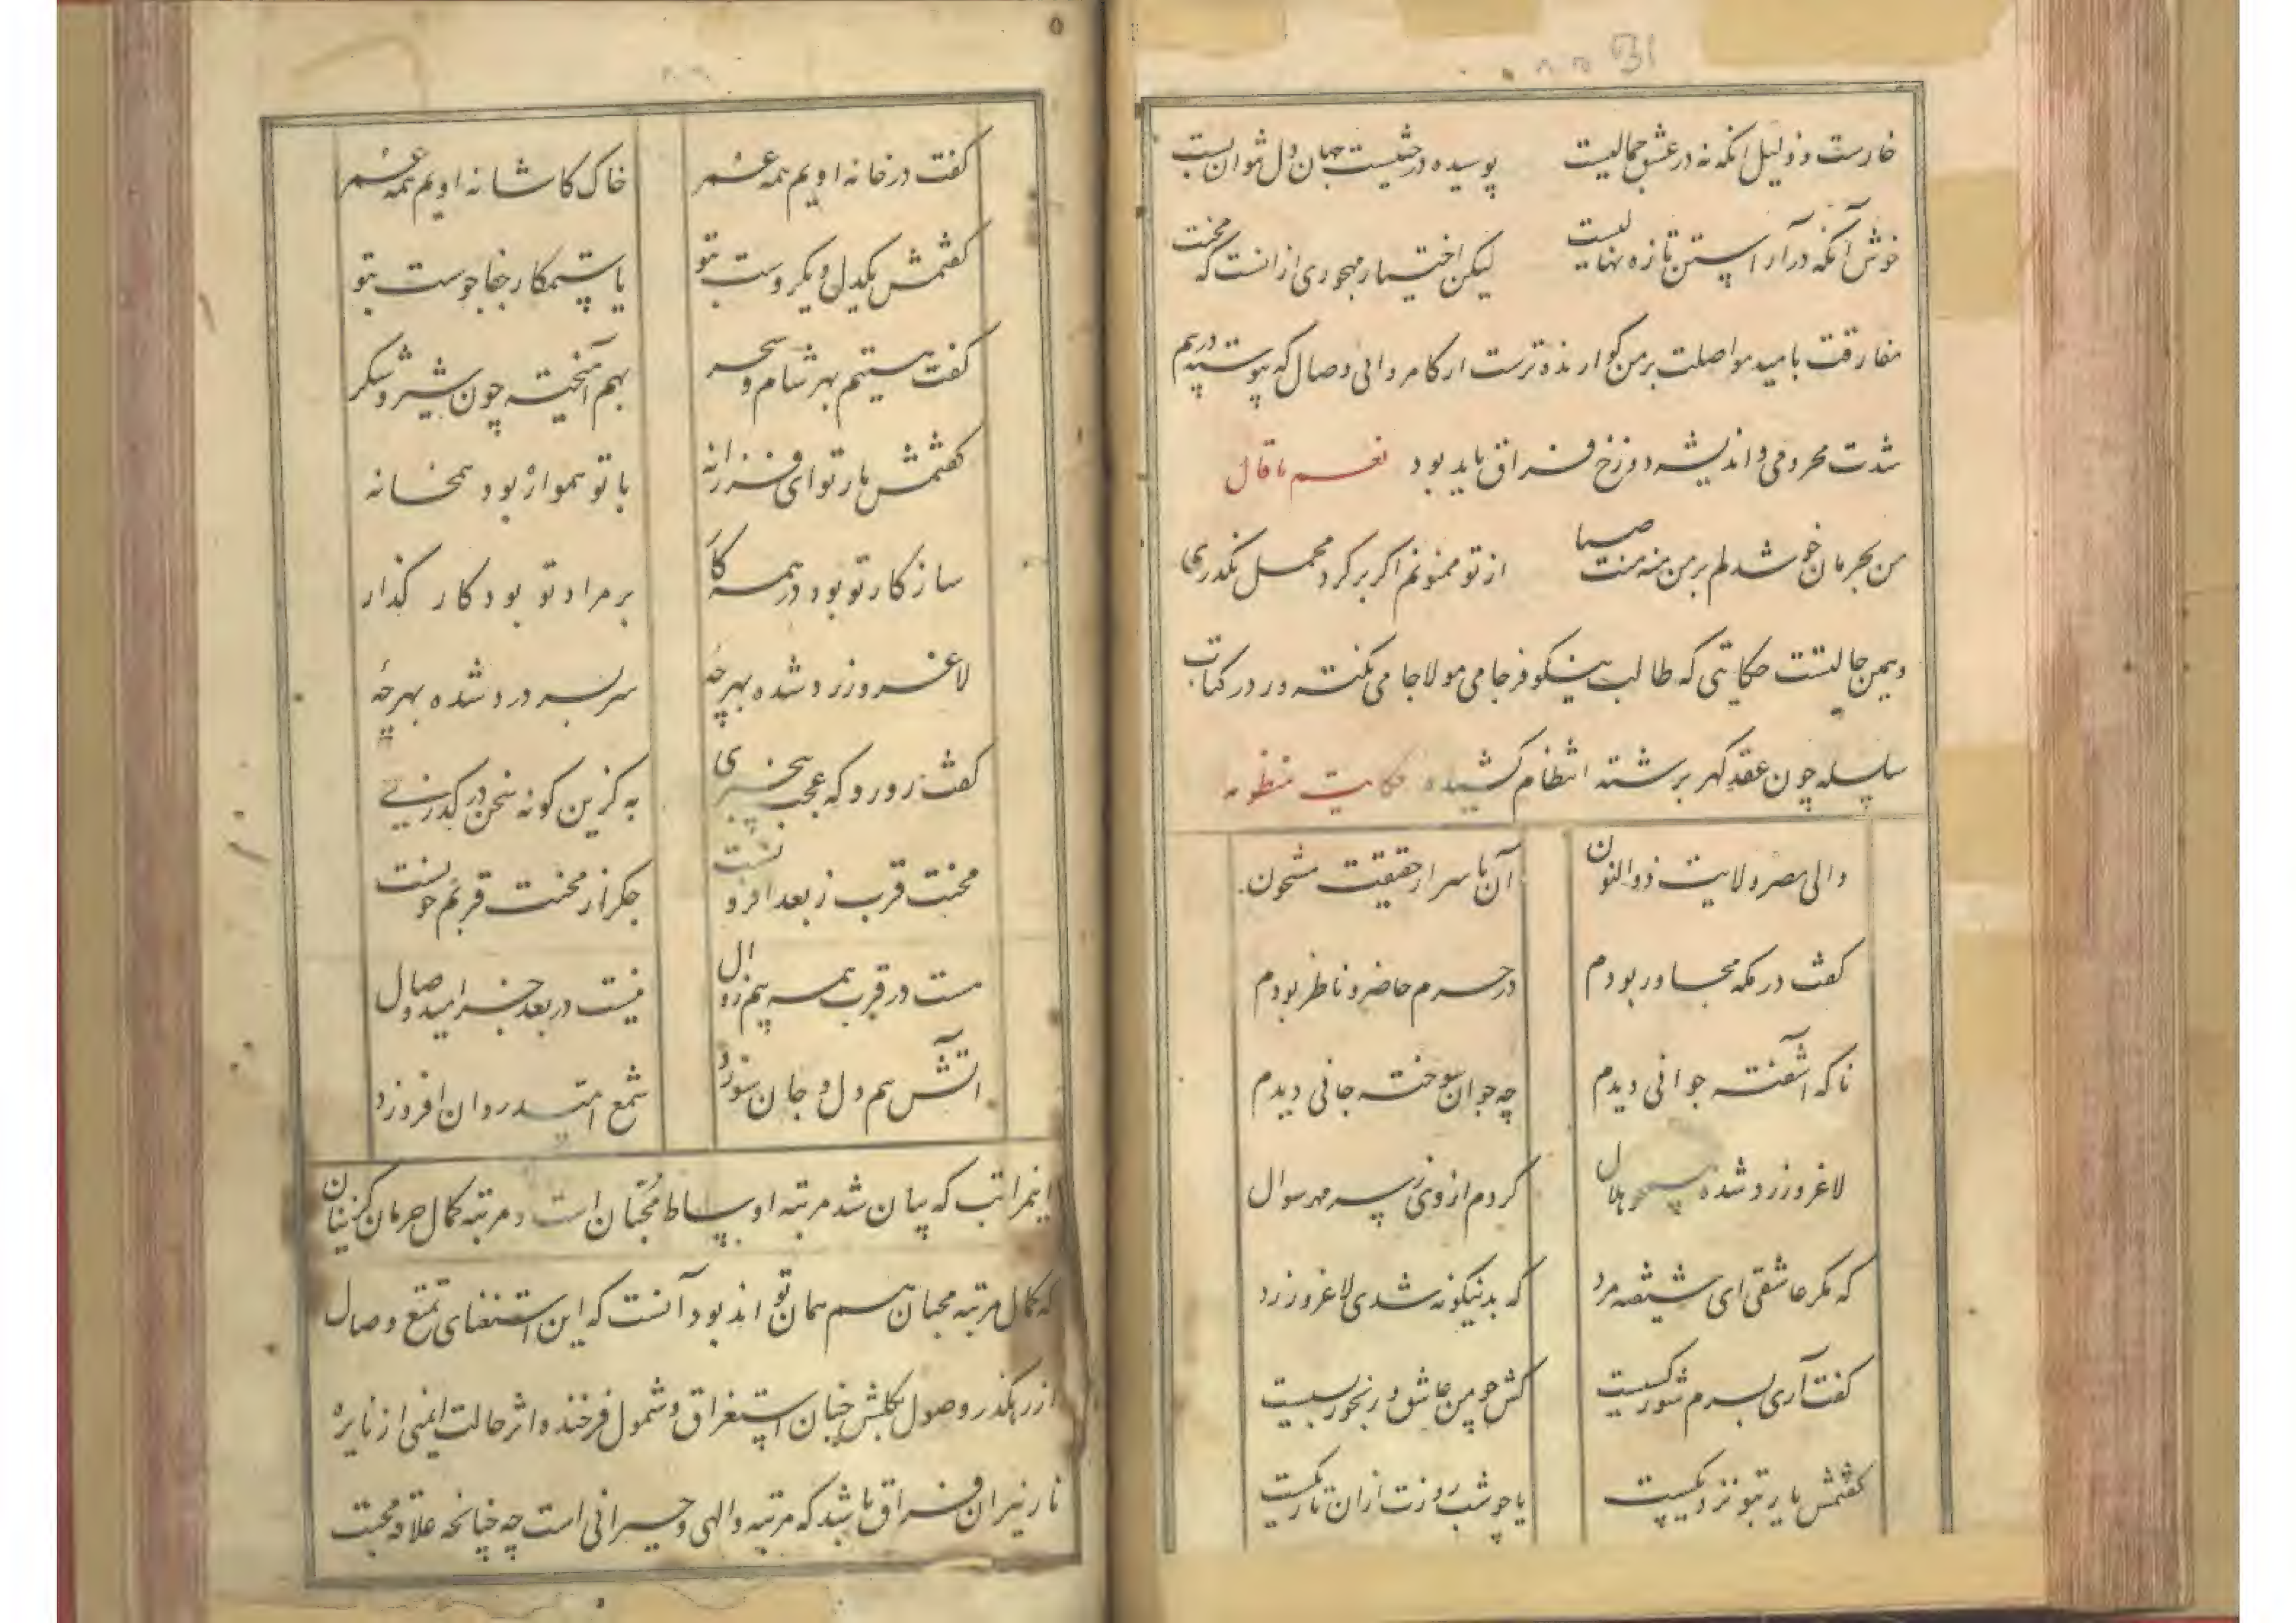 خارست و ذلیل آنکه نه در عشق جمالیست پوسیده درختیست جهان دل شوان بست
خوش آنکه در آراستن تازه نهالیست لیکن اختیار مهجوری از آنست که محنت
مفارقت بامید مواصلت بر من گوارنده ترست از کامروائی وصال که پیوسته در بیم
شدت محرومی و اندیشه دوزخ فراق باید بود نعم ما قال
من بحرمان خوشدلم بر من منه منت صبا از تو ممنونم اگر بر گرد محمل نگذری
و یمن حالیتست حکایتی که طالب نیکو فرجامی مولا جامی نکته ور در کتاب
سلسله چون عقد گهر برشته انتظام کشیده حکایت منظومه
والی مصر ولایت ذوالنون آن باسرار حقیقت مشحون
گفت در مکه مجاور بودم در حرم حاضر و ناظر بودم
ناگه آشفته جوانی دیدم چه جوان سوخته جانی دیدم
لاغر و زرد شده همچو هلال کردم از وی ز سر مهر سوال
که مگر عاشقی ای شیفته مرد که بدنیگونه شدی لاغر و زرد
گفت آری بسرم شور کسیست کش چو من عاشق و رنجور بسیست
گفتمش یار بتو نزدیکست یا چو شب روزت ازان تاریکست
گفت در خانه اویم همه عمر خاک کاشانه اویم همه عمر
گفتمش یکدل و یکروست بتو یا ستمکار جفاجوست بتو
گفت هستیم بهر شام و سحر بهم آمیخته چون شیر و شکر
گفتمش یار تو ای فرزانه با تو همواره بود همخانه
سازکار تو بود در همه کار بر مراد تو بود کار گذار
لاغر و زرد شده بهر چۀ سر بسر درد شده بهر چۀ
گفت رو رو که عجب بیخبری به کزین گونه سخن در گذری
محنت قرب ز بعد افزونست جگر از محنت قربم خونست
هست در قرب همه بیم زوال نیست در بعد جز امید وصال
آتش بیم دل و جان سوزد شمع امید روان افروزد
اینمراتب که بیان شد مرتبه اوساط محبان است و مرتبه کمال حرمان گزینان
که کمال مرتبه محبان هم همان تواند بود آنست که این استغنای تمتع وصال
از رهگذر وصول بگلشن جنان استغراق و شمول فرخنده اثر حالت ایمنی از نایره
نار نیران فراق باشد که مرتبه والهی و حیرانی است چه چنانچه علاقه محبت